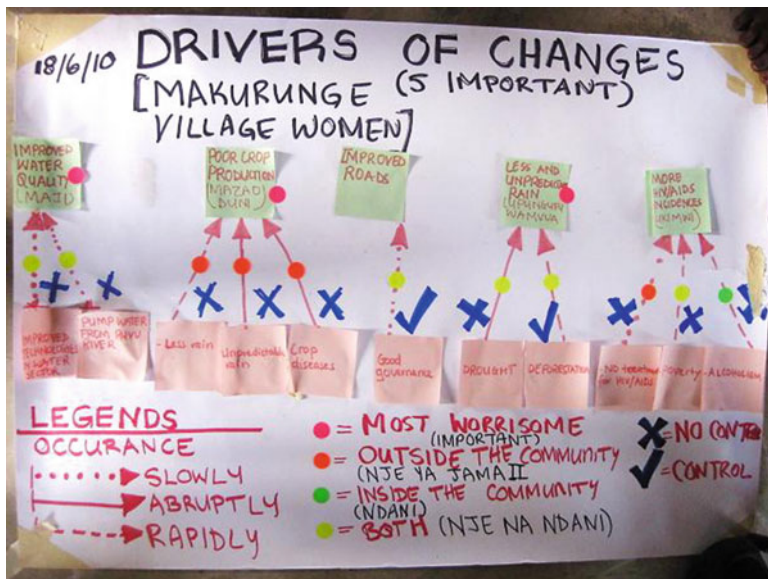 18/6/10 DRIVERS OF CHANGES
[MAKURUNGE (5 IMPORTANT)
VILLAGE WOMEN]
IMPROVED
WATER
QUALITY
(MAJI)
POOR CROP
PRODUCTION
(MAZAO
DUNI)
IMPROVED
ROADS
LESS AND
UNPREDICTABLE
RAIN
(UPUNGUFU
WA MVUA)
MORE
HIV/AIDS
INCIDENCES
(UKIMWI)
IMPROVED
TECHNOLOGIES
IN WATER
SECTOR
PUMP WATER
FROM RUVU
RIVER
- Less rain
Unpredictable
rain
Crop
diseases
Good
governance
DROUGHT
DEFORESTATION
- No treatment
for HIV/AIDS
Poverty
- ALCOHOLISM
LEGENDS
OCCURANCE
SLOWLY
ABRUPTLY
RAPIDLY
= MOST WORRISOME
(IMPORTANT)
= OUTSIDE THE COMMUNITY
(NJE YA JAMAII
= INSIDE THE COMMUNITY
(NDANI)
= BOTH (NJE NA NDANI)
X = NO CONTROL
✓ = CONTROL